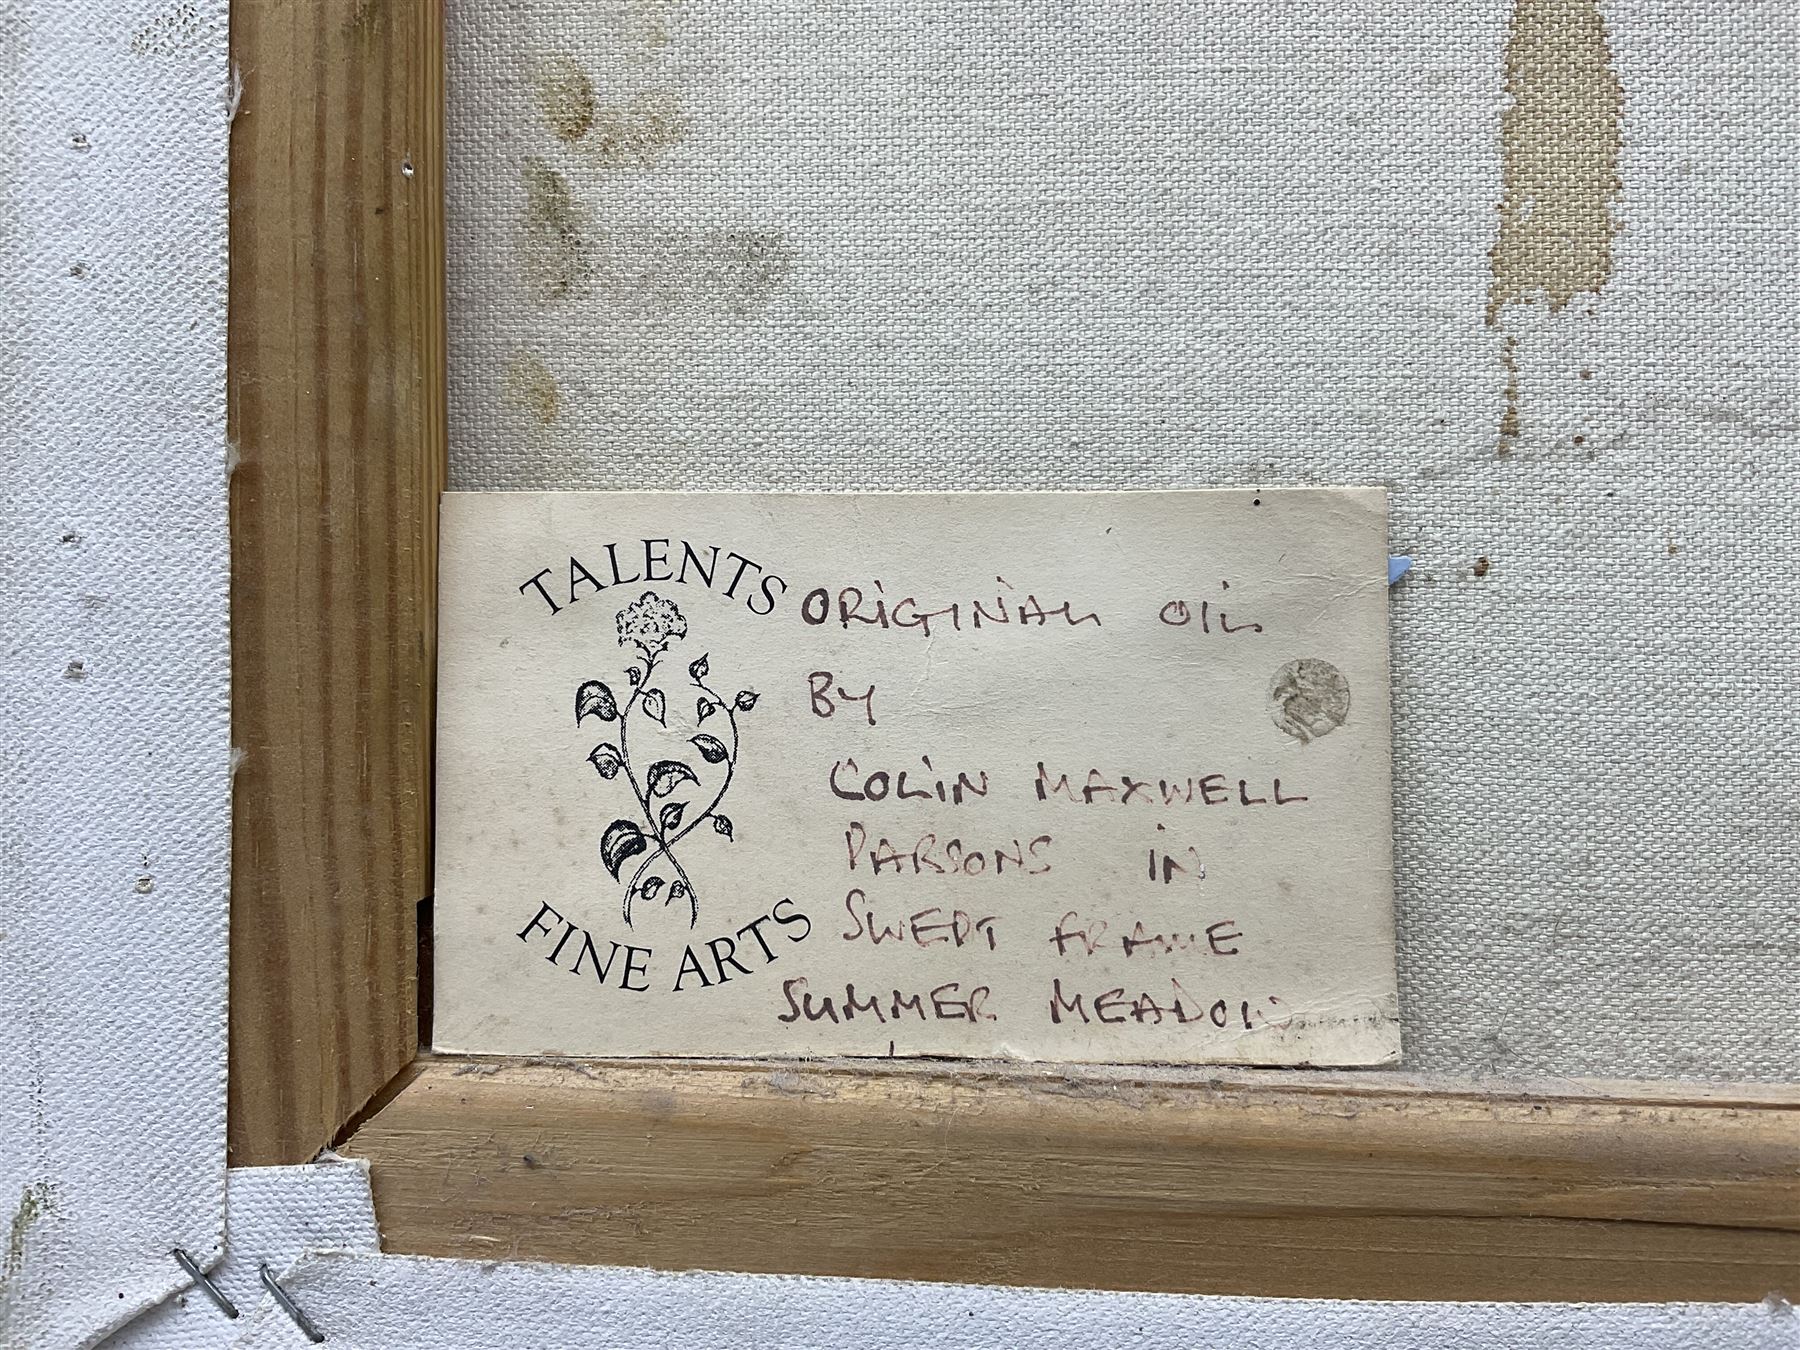 TALENTS
FINE ARTS
ORIGINAL OIL
BY
COLIN MAXWELL
PARSONS IN
SWEPT FRAME
SUMMER MEADOW